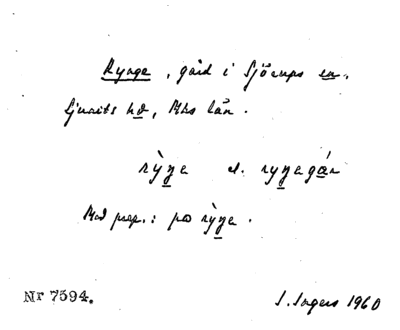 Rynge, gård i Sjörups sn.
Ljunits hd, Mhs län.
rỳŋe el. ryŋegár
Med prep.: po rỳŋe.
Nr 7594.
I. Ingers 1960